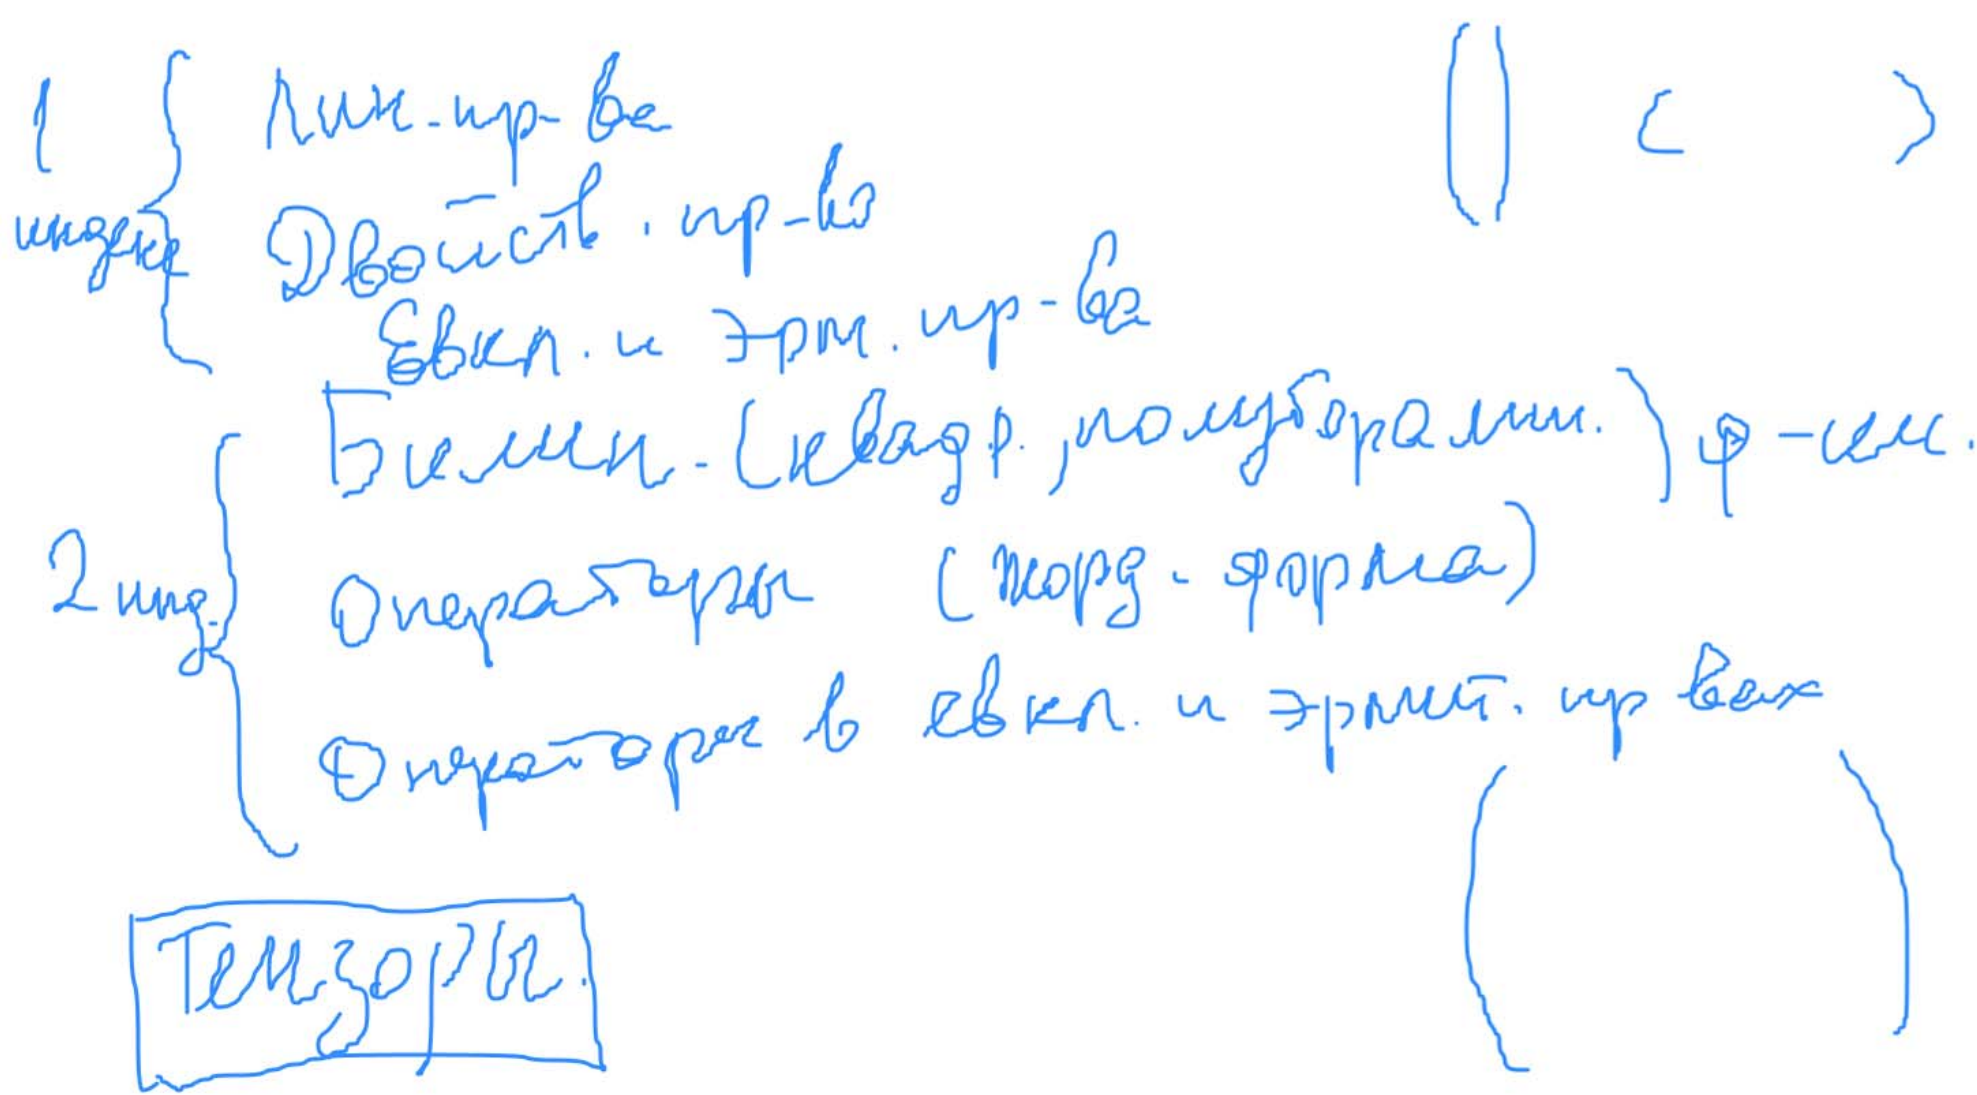 1 индекс
Лин. пр-ва
Двойств. пр-во
Евкл. и эрм. пр-ва
2 инд.
Билин. (квадр., полуторалин.) ф-ции.
Операторы (жорд. форма)
Операторы в евкл. и эрмит. пр вах
Тензоры.